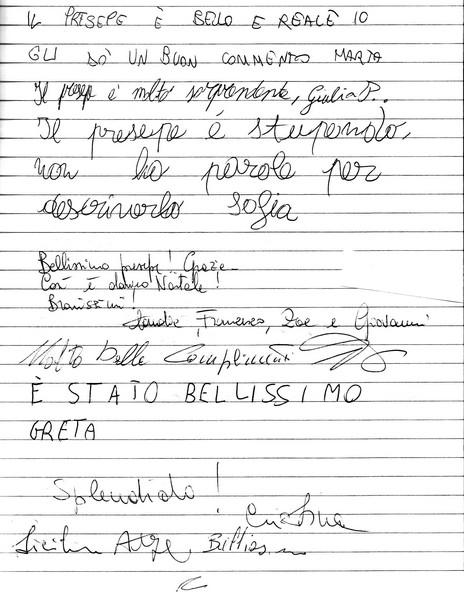 IL PRESEPE È BELLO E REALE IO
GLI DÒ UN BUON COMMENTO MARTA
Il presepe è molto sorprendente, Giulia P..
Il presepe é stupendo,
non ho parole per
descriverlo sofia
Bellissimo presepe! Grazie
Così è davvero Natale!
Bravissimi!
Francesco, Zoe e Giovanni
Molto Bello Complimenti
È STATO BELLISSIMO
GRETA
Splendido!
Cristina